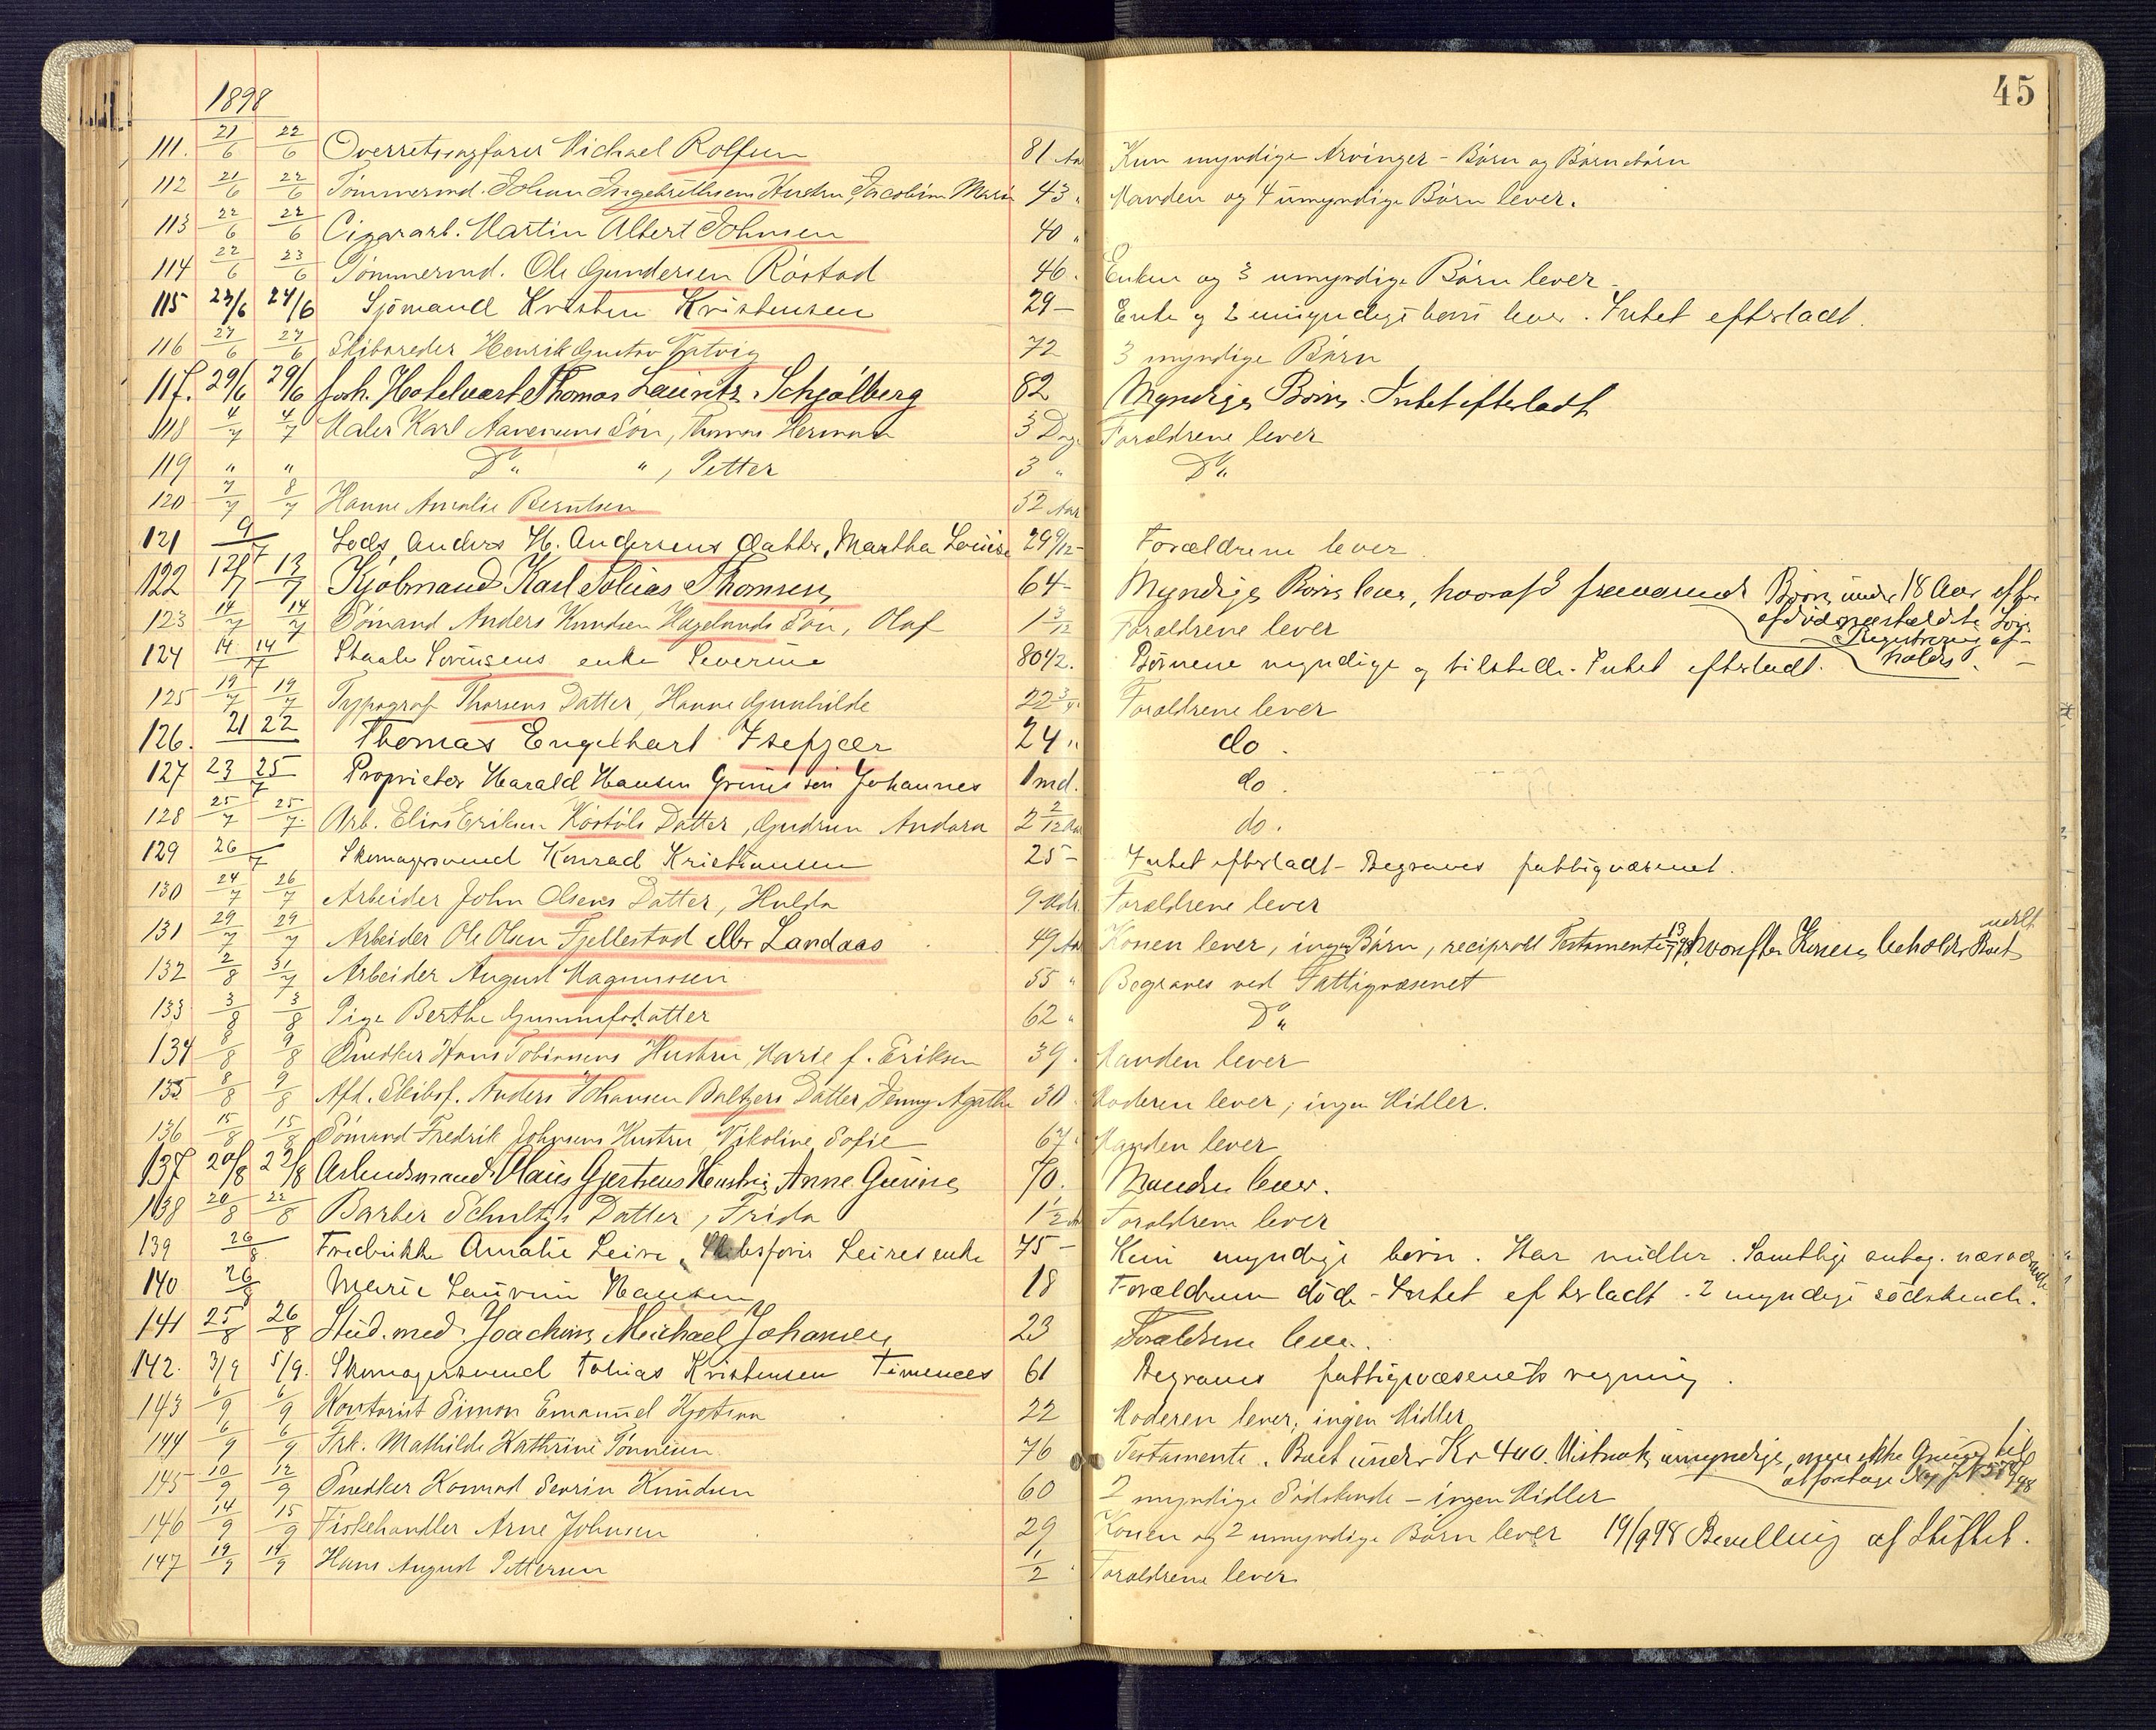 45
1898
111. 21/6 22/6 Overretssagfører Michael Rolfsen 81 Aar Kun myndige Arvinger - Børn og Børnebørn
112 21/6 22/6 Tømmermd. Johan Ingebrethsens Hustru, Jacobine Marie 43 " Manden og 4 umyndige Børn lever.
113 22/6 22/6 Cigararb. Martin Albert Johnsen 40 "
114 22/6 23/6 Tømmermd. Ole Gundersen Røstad 46. Enken og 3 umyndige Børn lever
115 23/6 24/6 Sjømand Kristen Kristensen 29 - Enke og 2 umyndige børn lever. Intet efterladt.
116 27/6 27/6 Skibsreder Henrik Gustav 72 3 myndige Børn
117. 29/6 29/6 forh. Hotelvært Thomas Lauritz Schjølberg 82 Myndige Børn. Intet efterladt
118 4/7 4/7 Maler Karl Aanensens Søn, Thomas Herman 3 Dage Forældrene lever
119 " " Do " , Petter 3 " Do
120 7/7 8/7 Hanne Amalie Berntsen 52 Aar
121 9/7 Lods Anders H. Andersens datter, Martha Louise 29 9/12 - Forældrene lever
122 12/7 13/7 Kjøbmand Karl Tobias Thomsen 64 - Myndige Børn lever, hvoraf 3 fraværende Børn under 18 Aar efter
afdøde
Registrering af-
holdes.
123 14/7 14/7 Sømand Anders Knudsen Hagelands Søn, Olaf 1 3/12 Forældrene lever
124 14 14/7 Staale Sørensens enke Severine 80 1/2. Børnene myndige og tilstede. Intet efterladt.
125 19/7 19/7 Typograf Thorsens Datter, Hanne Gunhilde 22 3/4 Forældrene lever
126. 21 22 Thomas Engelhart 24 " do.
127 23 25/7 Proprietær Harald Hansen Grims søn Johannes 1 md. do.
128 25/7 25/7. Arb. Elias Eriksen Køstøls Datter, Gudrun Andora 2 2/12 Aar do.
129 26/7 Skomagersvend Konrad Kristiansen 25 - Intet efterladt - Begraves fattigvæsenet.
130 24/7 26/7 Arbeider John Olsens Datter, Hulda 9 Mdr. Forældrene lever
131 29/7 29/7 Arbeider Ole Olsen Fjellestad eller Landaas 49 Aar Konen lever, ingen Børn, reciprokt Testamente hvorefter Konen beholder Boet
132 2/8 31/7 Arbeider August Magnussen 55 " Begraves ved Fattigvæsenet
133 3/8 3/8 Pige Berthe Gummefsdatter 62 " Do
134 8/8 9/8 Snedker Hans Tobiassens Hustru, Marie f. Eriksen 39. Manden lever
135 8/8 9/8 Afd. Skibsf. Anders Johansen Baltzers Datter, Jenny Agathe 30 Moderen lever; ingen Midler.
136 15/8 15/8 Sømand Fredrik Johnsens Hustru Nikoline Sofie 67 " Manden lever
137 20/8 22/8 Arbeidsmand Claus Gjertsens Hustru Anne Gurine 70. Manden lever.
138 20/8 22/8 Barber Schultz's Datter, Frida 1 1/2 Aar Forældrene lever
139 26/8. Fredrikke Amalie Leire, Skibsfører Leires enke 75 - Kun myndige børn. Har midler. Samtlige antag. nærværende
140 26/8 Marie Laurine Hansen 18 Forældrene døde - Intet efterladt - 2 myndige sødskende.
141 25/8 26/8 Stud. med. Joachim Michael Johansen 23 Forældrene lever.
142. 3/9 5/9. Skomagersvend Tobias Kristensen Timenees 61 Begraves fattigvæsenets regning.
143 6/9 6/9 Kontorist Simon Emanuel 22 Moderen lever; ingen Midler
144 6/9 6/9 Frk. Mathilde Kathrine Tønnesen 76 Testamente. Boet under Kr 400. Vistnok umyndige, men ikke Grund til
at foretage
145 10/9 12/9 Snedker Konrad Severin Knudsen 60 2 myndige Sødskende - ingen Midler
146 14/9 15/9 Fiskehandler Arne Johnsen 29 Konen og 2 umyndige Børn lever 19/9 98 Bevilling af Stiftet.
147 19/9 19/9 Hans August Pettersen 1/2 Forældrene lever